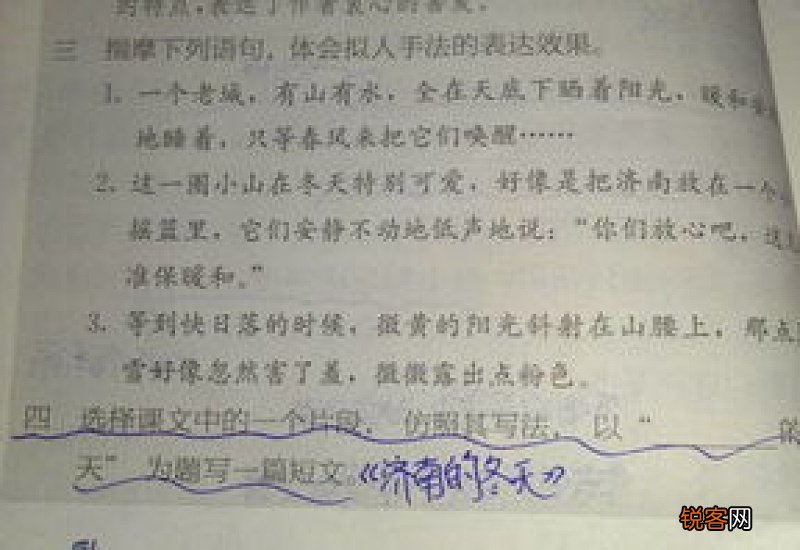 的特点,表达了作者衷心的喜爱。
三 揣摩下列语句,体会拟人手法的表达效果。
1. 一个老城,有山有水,全在天底下晒着阳光,暖和
地睡着,只等春风来把它们唤醒……
2. 这一圈小山在冬天特别可爱,好像是把济南放在一个
摇篮里,它们安静不动地低声地说:“你们放心吧,这
准保暖和。”
3. 等到快日落的时候,微黄的阳光斜射在山腰上,那点
雪好像忽然害了羞,微微露出点粉色。
四 选择课文中的一个片段,仿照其写法,以“ 的
天”为题写一篇短文。《济南的冬天》
锐客网